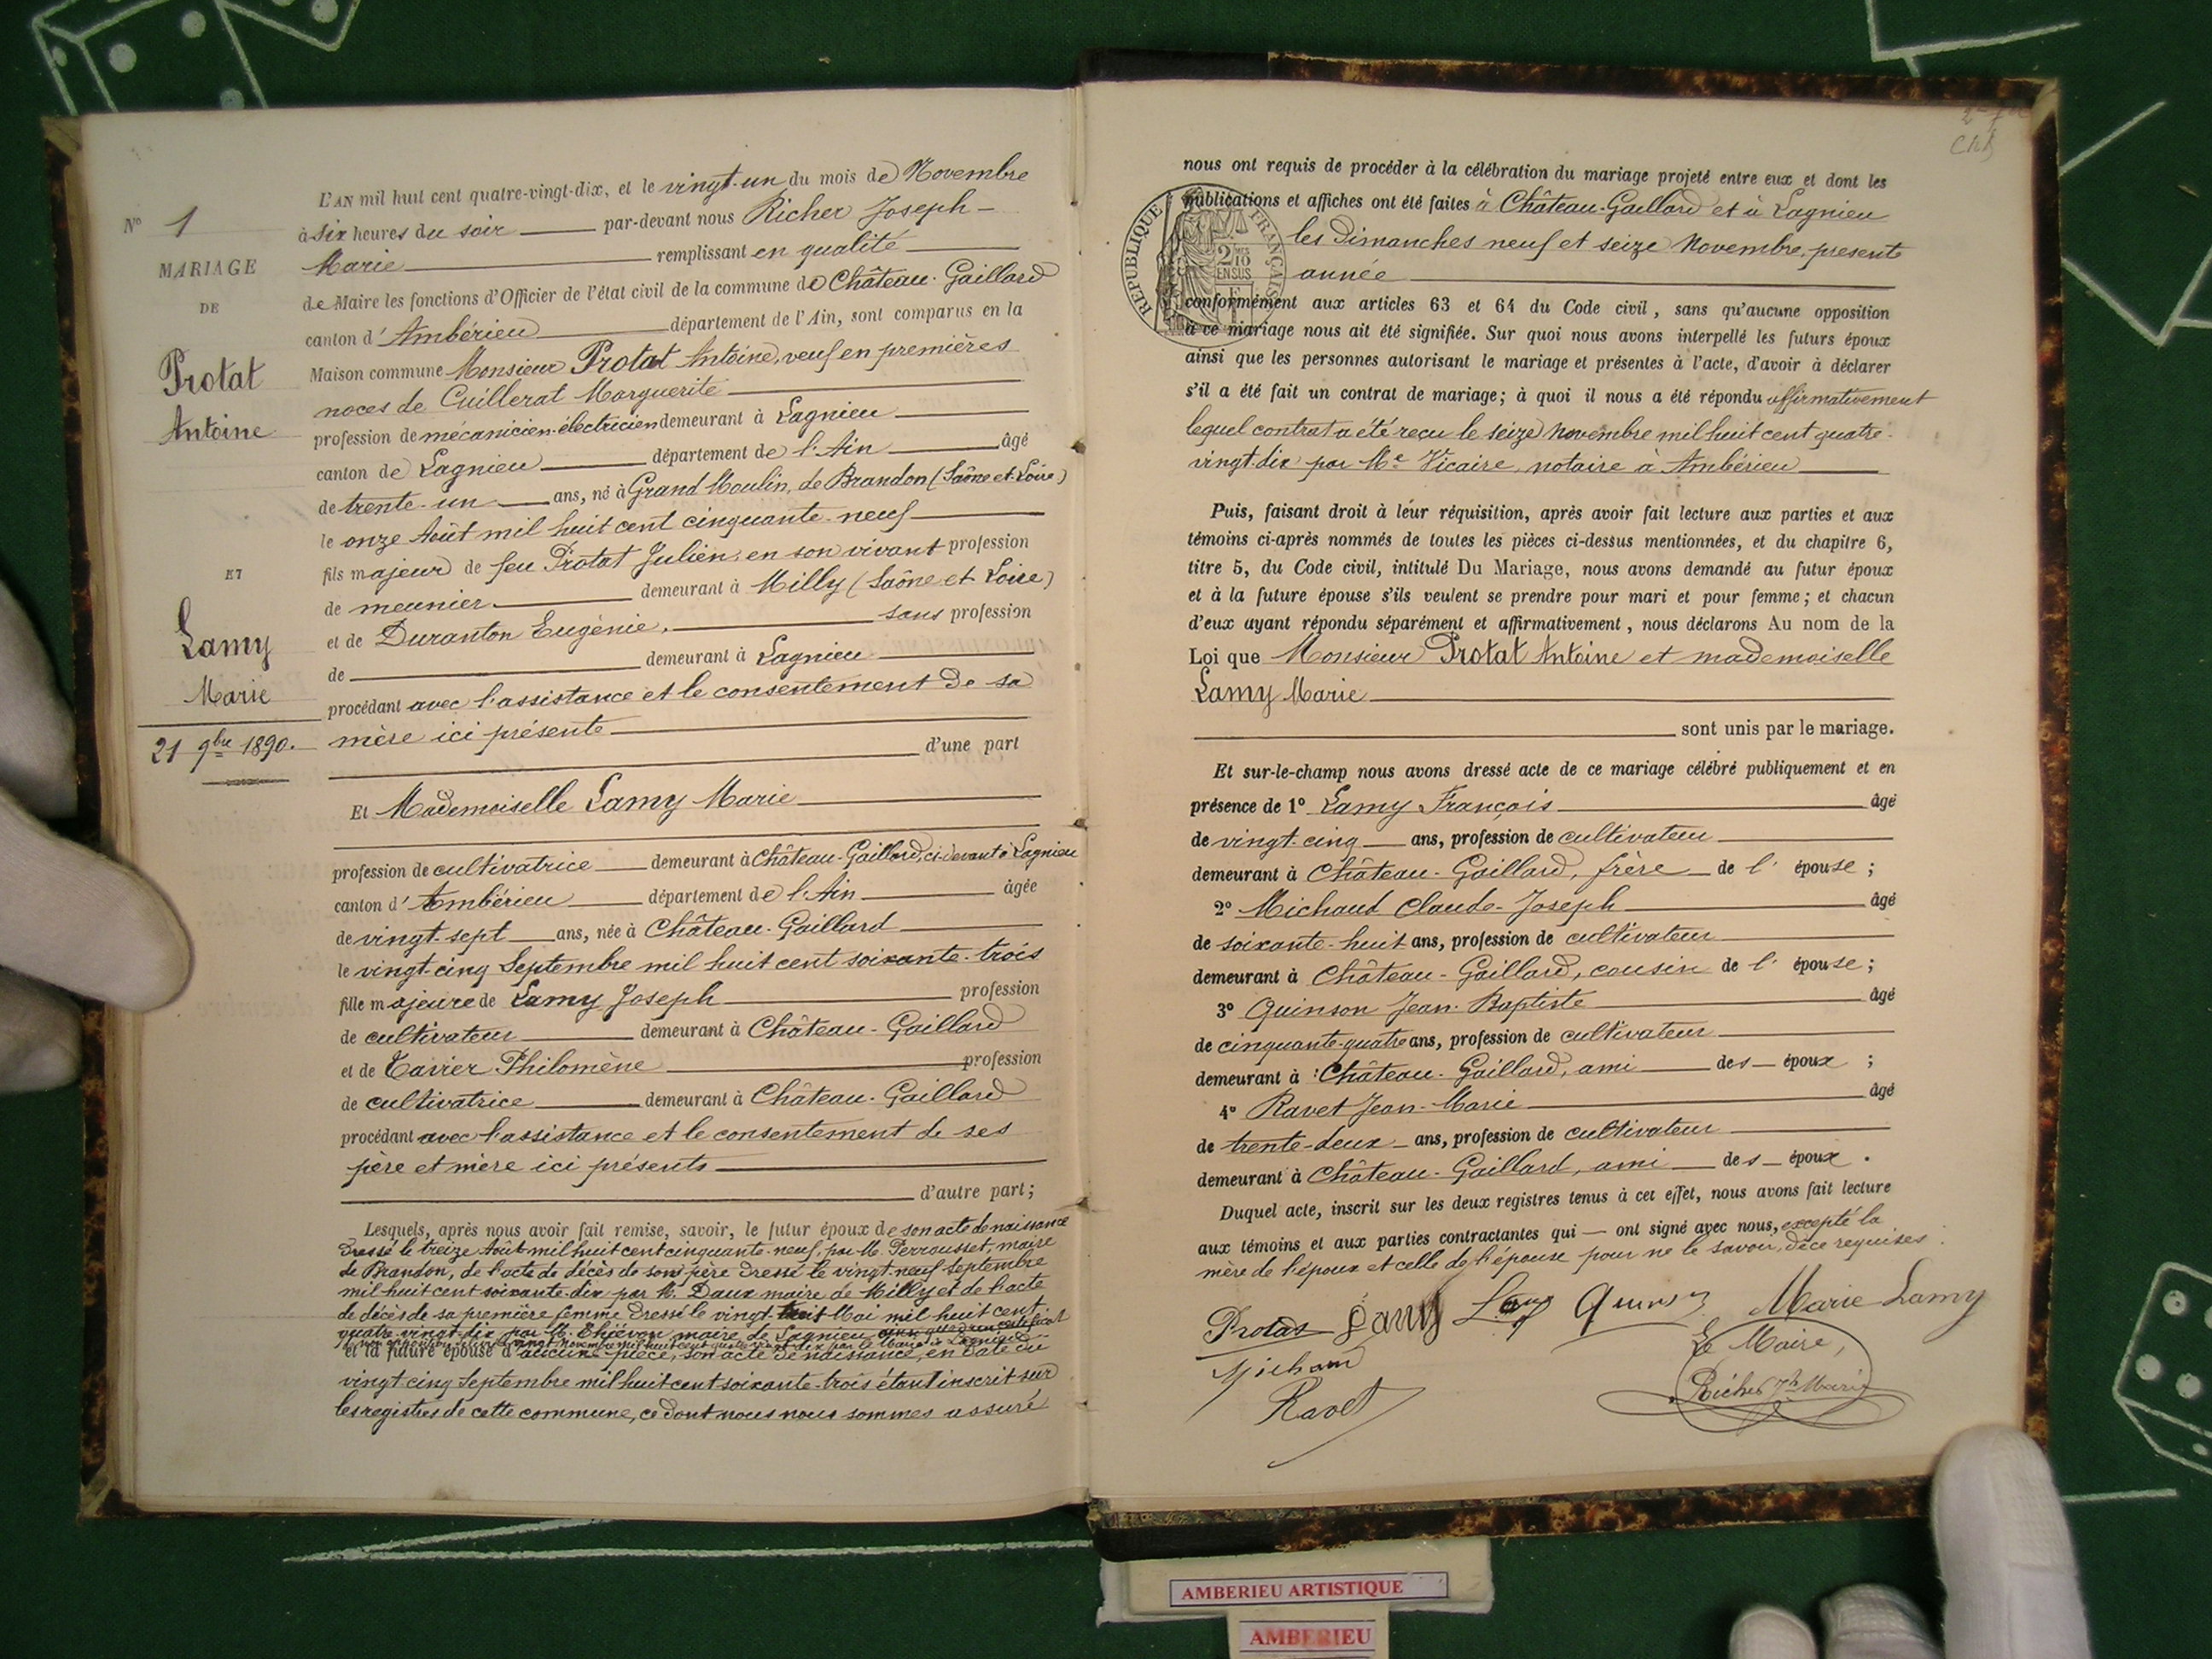 L'AN mil huit cent quatre-vingt-dix, et le vingt-un du mois de Novembre
à six heures du soir par-devant nous Richer Joseph-
Marie remplissant en qualité
de Maire les fonctions d'Officier de l'état civil de la commune de Château-Gaillard
canton d'Ambérieu département de l'Ain, sont comparus en la
Maison commune Monsieur Protat Antoine, veuf en premières
noces de Cuillerat Marguerite
profession de mécanicien-électricien demeurant à Lagnieu
canton de Lagnieu département de l'Ain âgé
de trente-un ans, né à Grand Moulin, de Brandon (Saône et Loire)
le onze Août mil huit cent cinquante-neuf
fils majeur de feu Protat Julien, en son vivant profession
de meunier demeurant à Milly (Saône et Loire)
et de Duranton Eugénie, sans profession
de demeurant à Lagnieu
procédant avec l'assistance et le consentement de sa
mère ici présente
d'une part
Et Mademoiselle Lamy Marie
profession de cultivatrice demeurant à Château-Gaillard, ci-devant à Lagnieu
canton d'Ambérieu département de l'Ain âgée
de vingt-sept ans, née à Château-Gaillard
le vingt-cinq Septembre mil huit cent soixante-trois
fille majeure de Lamy Joseph profession
de cultivateur demeurant à Château-Gaillard
et de Tavier Philomène profession
de cultivatrice demeurant à Château-Gaillard
procédant avec l'assistance et le consentement de ses
père et mère ici présents
d'autre part;
Lesquels, après nous avoir fait remise, savoir, le futur époux de son acte de naissance
dressé le treize Août mil huit cent cinquante-neuf, par M. Perrousset, maire
de Brandon, de l'acte de décès de son père dressé le vingt-neuf Septembre
mil huit cent soixante-dix par M. Daux maire de Milly et de l'acte
de décès de sa première femme dressé le vingt-huit Mai mil huit cent
quatre-vingt-dix par M. maire de Lagnieu ainsi que d'un certificat
et la future épouse d'aucune pièce, son acte de naissance, en date du
vingt-cinq Septembre mil huit cent soixante-trois étant inscrit sur
les registres de cette commune, ce dont nous nous sommes assuré
N° 1
MARIAGE
DE
Protat
Antoine
ET
Lamy
Marie
21 9bre 1890.
nous ont requis de procéder à la célébration du mariage projeté entre eux et dont les
publications et affiches ont été faites à Château-Gaillard et à Lagnieu
les Dimanches neuf et seize Novembre, présente
année
RÉPUBLIQUE FRANÇAISE
2/10 EN SUS
conformément aux articles 63 et 64 du Code civil, sans qu'aucune opposition
à ce mariage nous ait été signifiée. Sur quoi nous avons interpellé les futurs époux
ainsi que les personnes autorisant le mariage et présentes à l'acte, d'avoir à déclarer
s'il a été fait un contrat de mariage; à quoi il nous a été répondu affirmativement
lequel contrat a été reçu le seize Novembre mil huit cent quatre-
vingt-dix par Me Vicaire, notaire à Ambérieu
Puis, faisant droit à leur réquisition, après avoir fait lecture aux parties et aux
témoins ci-après nommés de toutes les pièces ci-dessus mentionnées, et du chapitre 6,
titre 5, du Code civil, intitulé Du Mariage, nous avons demandé au futur époux
et à la future épouse s'ils veulent se prendre pour mari et pour femme; et chacun
d'eux ayant répondu séparément et affirmativement, nous déclarons Au nom de la
Loi que Monsieur Protat Antoine et mademoiselle
Lamy Marie
sont unis par le mariage.
Et sur-le-champ nous avons dressé acte de ce mariage célébré publiquement et en
présence de 1° Lamy François âgé
de vingt-cinq ans, profession de cultivateur
demeurant à Château-Gaillard, frère de l'épouse;
2° Michaud Claude-Joseph âgé
de soixante-huit ans, profession de cultivateur
demeurant à Château-Gaillard, cousin de l'épouse;
3° Quinson Jean-Baptiste âgé
de cinquante-quatre ans, profession de cultivateur
demeurant à Château-Gaillard, ami des époux;
4° Ravet Jean-Marie âgé
de trente-deux ans, profession de cultivateur
demeurant à Château-Gaillard, ami des époux.
Duquel acte, inscrit sur les deux registres tenus à cet effet, nous avons fait lecture
aux témoins et aux parties contractantes qui — ont signé avec nous, excepté la
mère de l'époux et celle de l'épouse pour ne le savoir, de ce requises.
Protat Lamy Lamy Quinson Marie Lamy
Michaud
Le Maire,
Ravet
Richer Jh Marie
AMBERIEU ARTISTIQUE
AMBERIEU